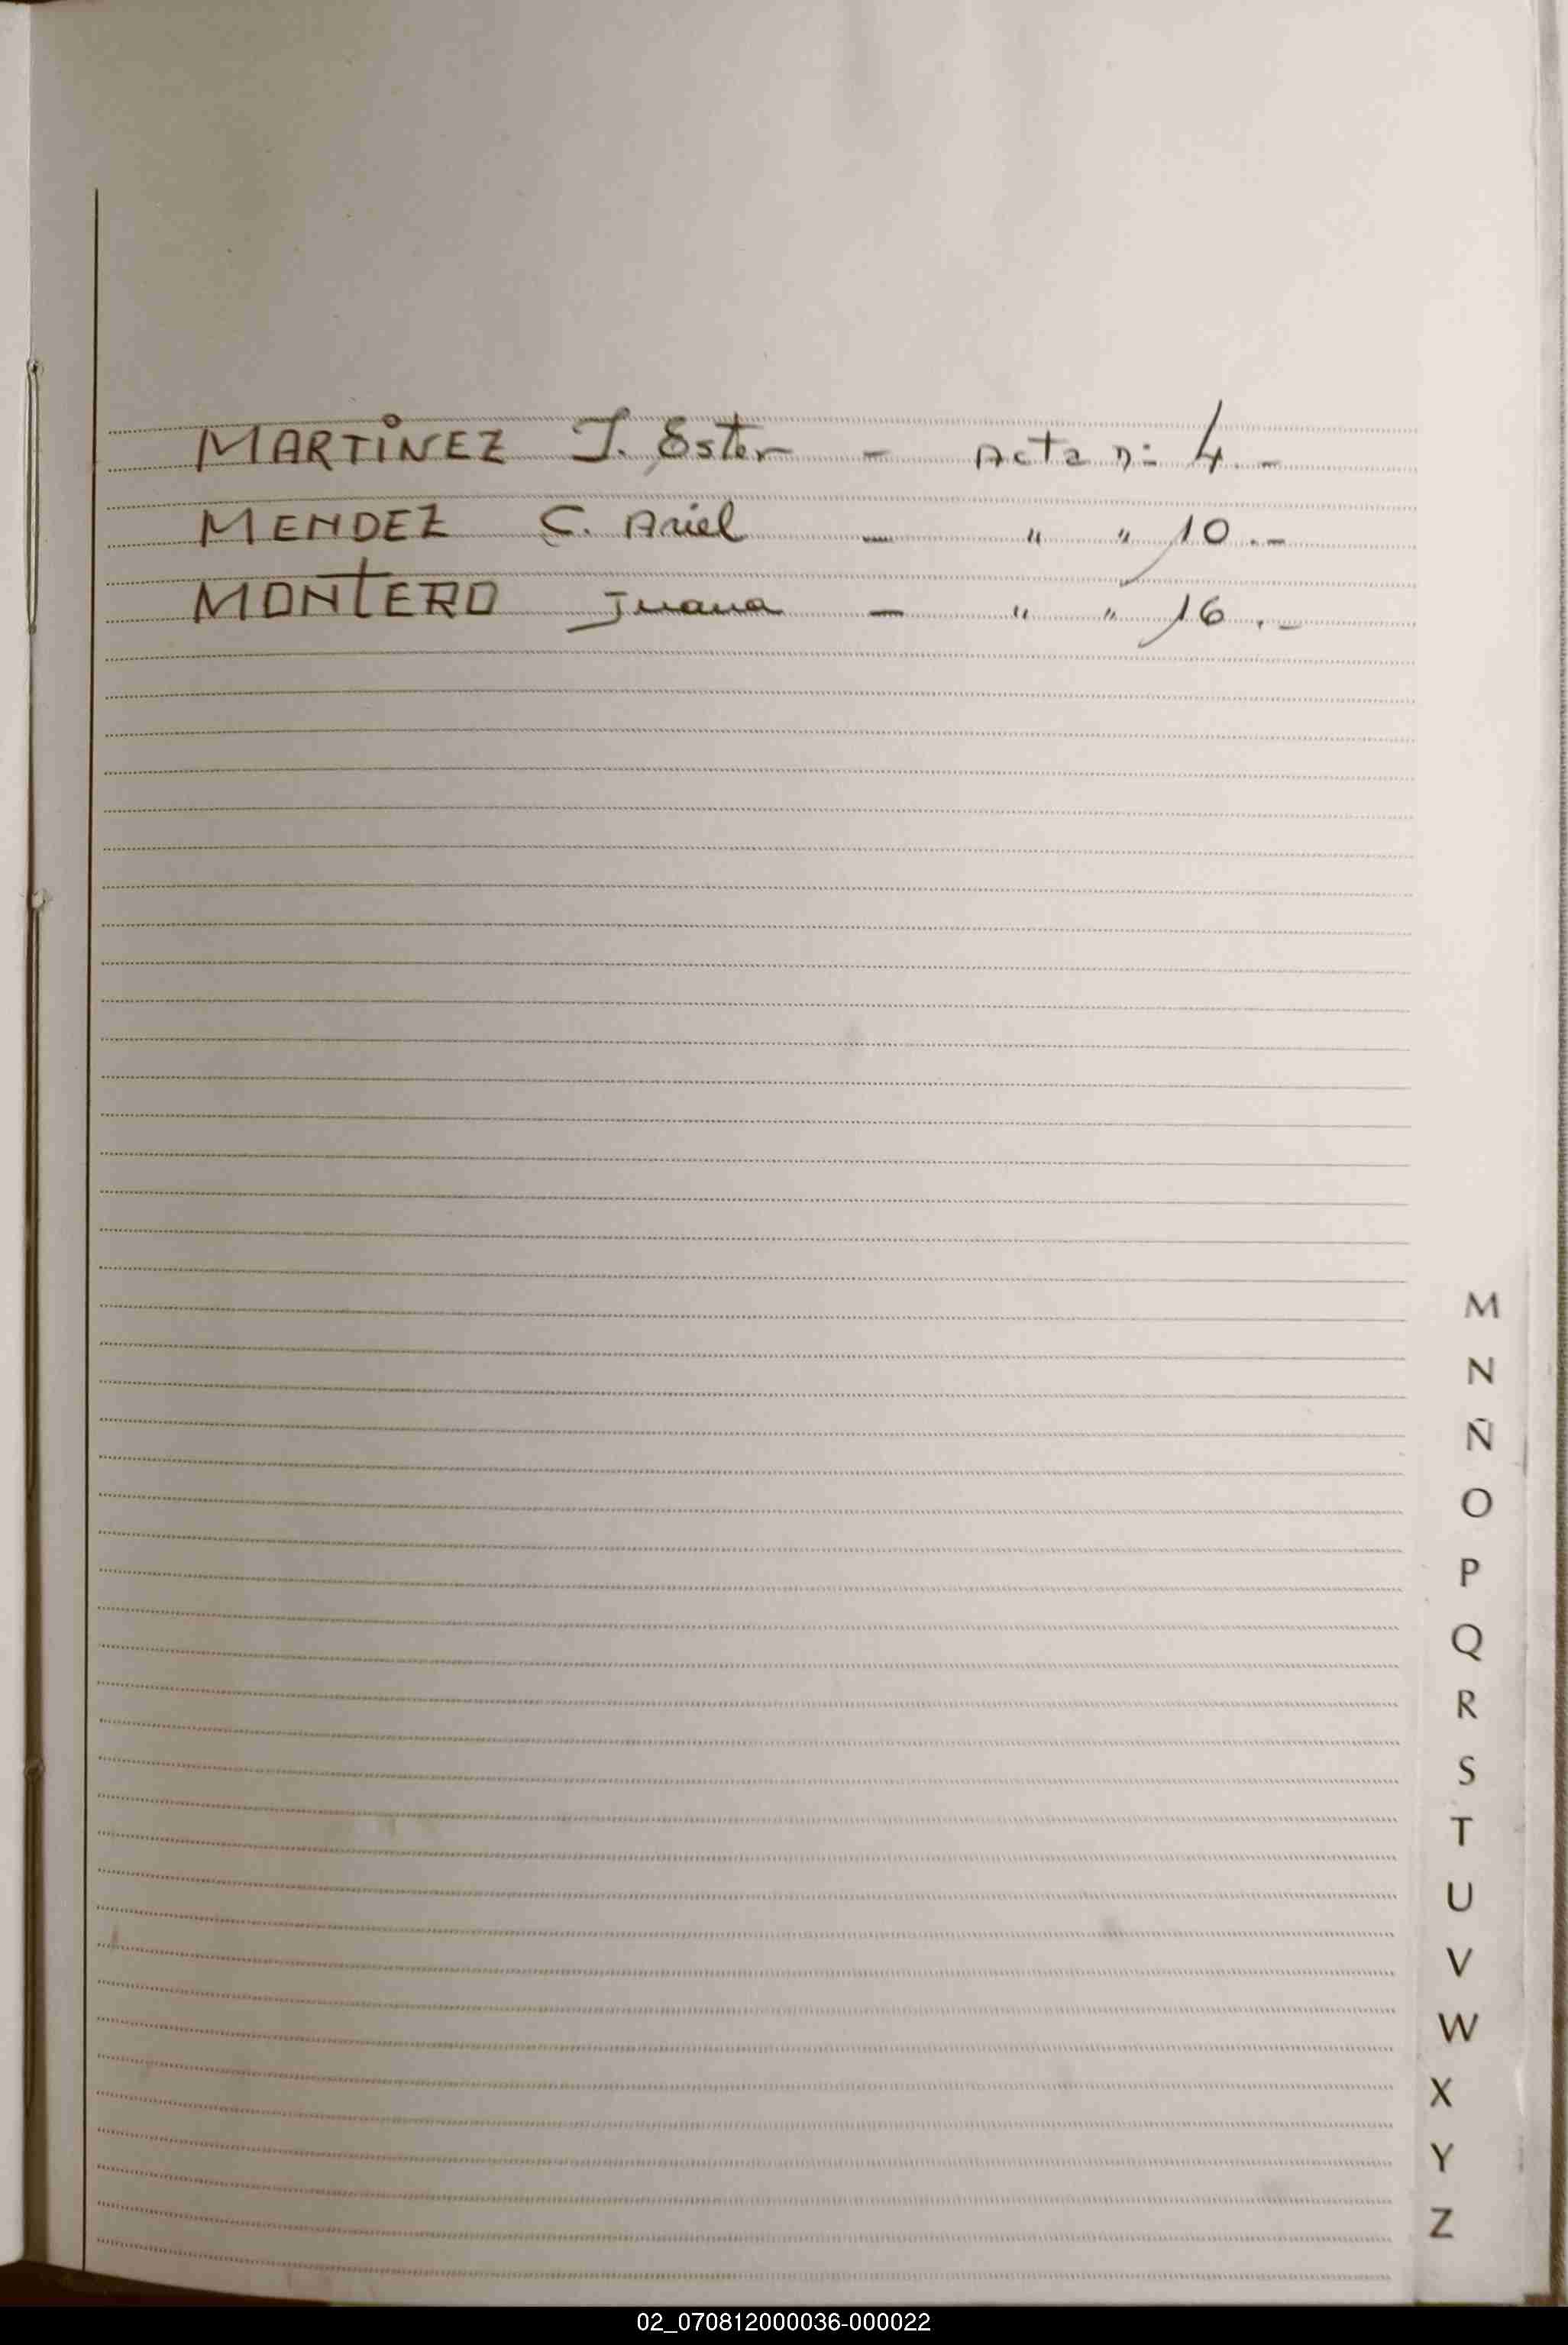 MARTINEZ J. Ester - Acta n: 4.-
MENDEZ C. Ariel - " " 10.-
MONTERO Juana - " " 16.-
M
N
Ñ
O
P
Q
R
S
T
U
V
W
X
Y
Z
02_070812000036-000022